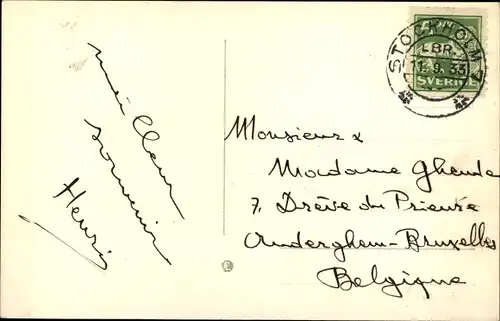 meilleur
souvenir
Henri
STOCKHOLM 7
LBR.
11.9.33
SVERIGE
Monsieur &
Madame Ghende
7, Drève du Prieuré
Auderghem-Bruxelles
Belgique